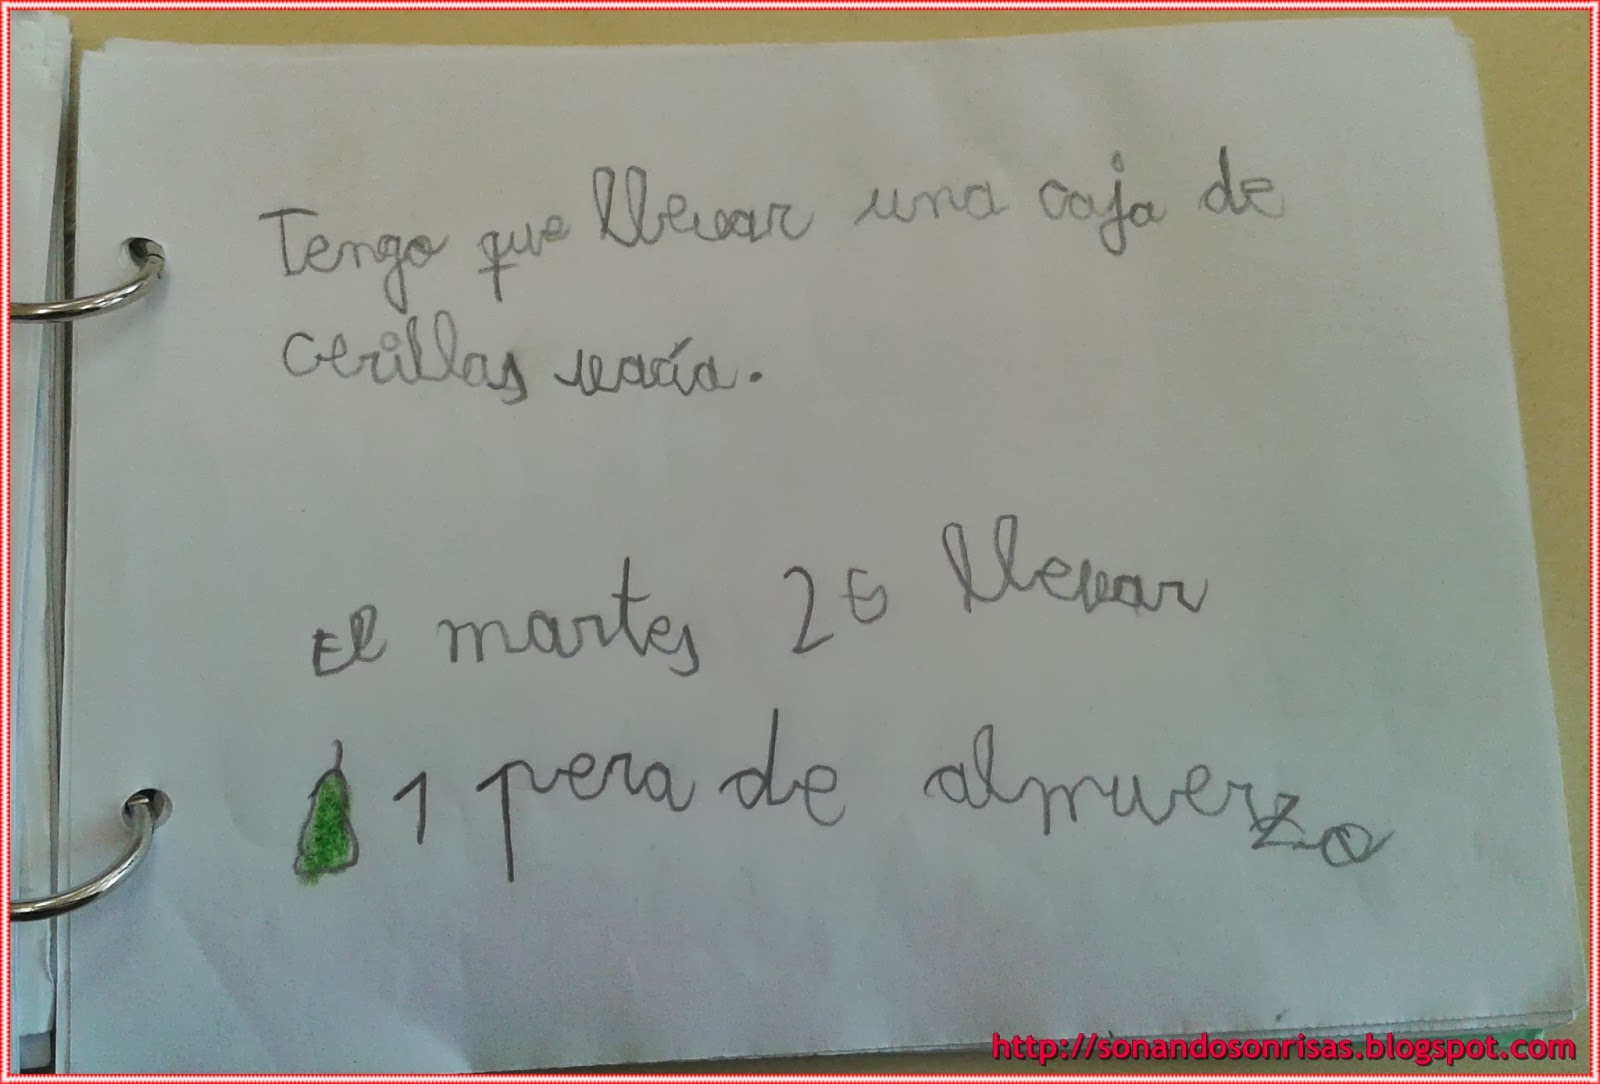 Tengo que llevar una caja de
cerillas vacía.
El martes 26 llevar
1 pera de almuerzo
http://sonandosonrisas.blogspot.com